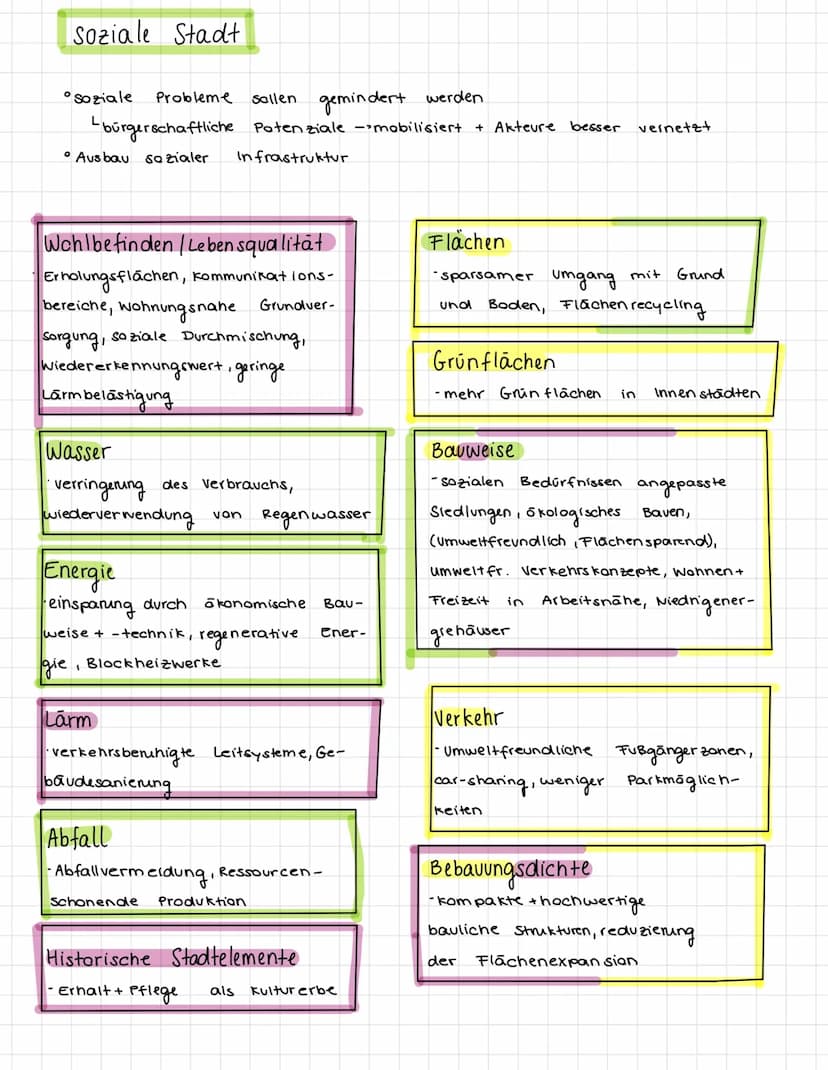 soziale Stadt
° soziale Probleme sollen gemindert werden
└ bürgerschaftliche Potenziale → mobilisiert + Akteure besser vernetzt
° Ausbau sozialer Infrastruktur
Wohlbefinden / Lebensqualität
· Erholungsflächen, Kommunikations-
bereiche, wohnungsnahe Grundver-
sorgung, soziale Durchmischung,
Wiedererkennungswert, geringe
Lärmbelästigung
Wasser
· verringerung des verbrauchs,
wiederverwendung von Regenwasser
Energie
· einsparung durch ökonomische Bau-
weise + -technik, regenerative Ener-
gie, Blockheizwerke
Lärm
· verkehrsberuhigte Leitsysteme, Ge-
bäudesanierung
Abfall
- Abfallvermeidung, Ressourcen-
schonende Produktion
Historische Stadtelemente
- Erhalt + Pflege als Kulturerbe
Flächen
- sparsamer umgang mit Grund
und Boden, Flächenrecycling
Grünflächen
- mehr Grünflächen in Innenstädten
Bauweise
- sozialen Bedürfnissen angepasste
Siedlungen, ökologisches Bauen,
(umweltfreundlich, Flächensparend),
umweltfr. Verkehrskonzepte, Wohnen +
Freizeit in Arbeitsnähe, Niedrigener-
giehäuser
Verkehr
- umweltfreundliche Fußgängerzonen,
car-sharing, weniger Parkmöglich-
keiten
Bebauungsdichte
- kompakte + hochwertige
bauliche Strukturen, reduzierung
der Flächenexpansion